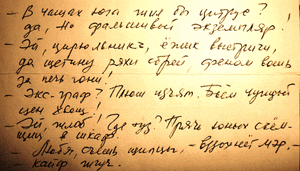 - В чащах юга жил бы цитрус?
Да, но фальшивый экземпляр.
- Эй, цирюльникъ, ёжик выстриги,
да щетину ряхи сбрей, феном вошь
за печь гони!
- Экс-граф? Плюш изъят. Бьём чуждый
цен хвощ!
- Эй, жлоб! Где туз? Прячь юных съём-
щиц в шкаф.
- Любя, съешь щипцы, - вздохнёт мэр, -
- кайф жгуч.